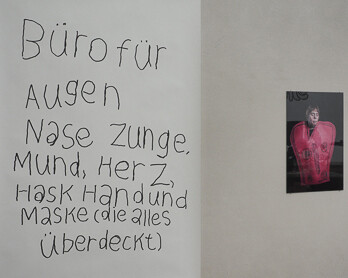 Büro für
Augen
Nase Zunge,
Mund, Herz,
Hask Hand und
Maske (die alles
überdeckt)